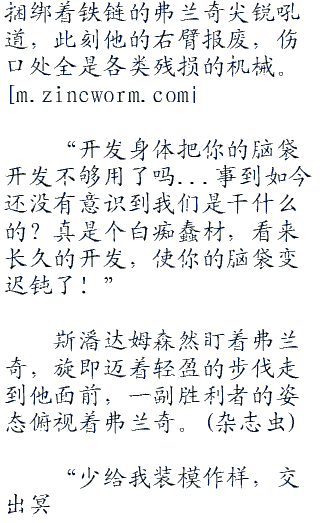 捆绑着铁链的弗兰奇尖锐吼
道，此刻他的右臂报废，伤
口处全是各类残损的机械。
[m.zincworm.com|
“开发身体把你的脑袋
开发不够用了吗...事到如今
还没有意识到我们是干什么
的？真是个白痴蠢材，看来
长久的开发，使你的脑袋变
迟钝了！”
斯潘达姆森然盯着弗兰
奇，旋即迈着轻盈的步伐走
到他面前，一副胜利者的姿
态俯视着弗兰奇。(杂志虫)
“少给我装模作样，交
出冥